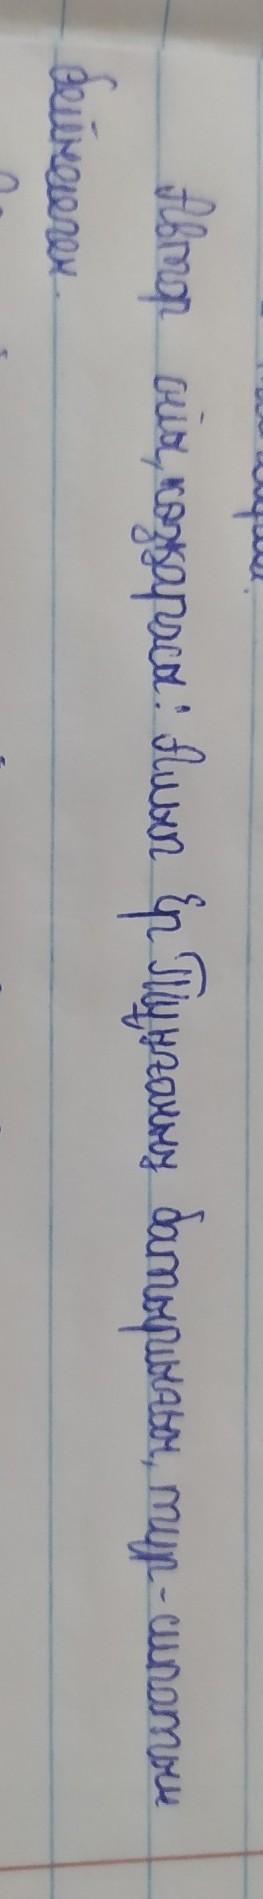 Автор ойы, көзқарасы: Алып Ер Тұңғаның батырлығын, түр-сипатын
бейнелеген.